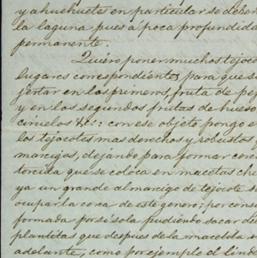 y ahuehuete en particular se debe
la laguna pues a poca profundida
permanente.
Quiero poner muchos tejoco
lugares correspondientes para que s
jertar en los primeros, fruta de pe
y en los segundos frutas de hueso
ciruelos &c.: con ese objeto pongo e
los tejocotes mas derechos y robustos
mancijos, dejando para formar cerc
torcida que se coloca en macetas ch
ya un grande almacigo de tejocote s
ocupar la cerca de este genero; por cons
formaba por si sola pudiendo sacar de
plantitas que despues de la macetida s
adelante, como por ejemplo el linde